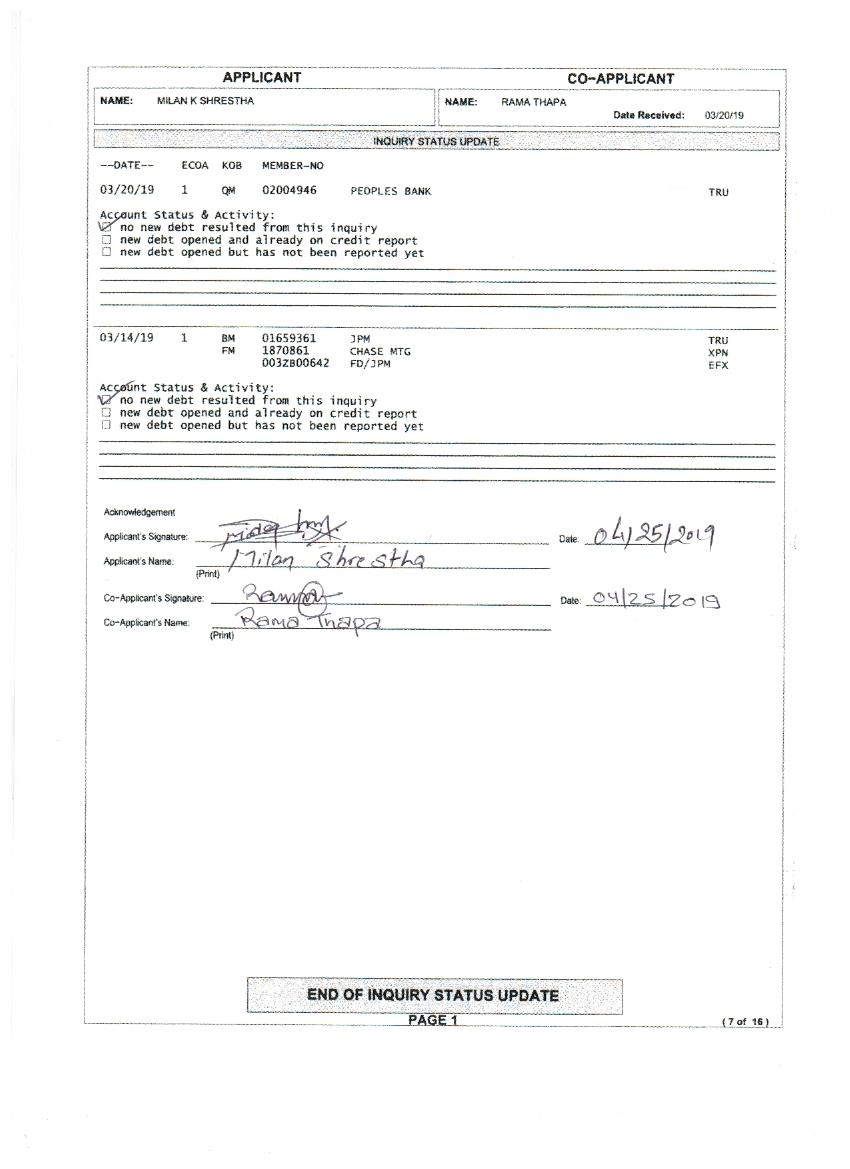 APPLICANT CO-APPLICANT
NAME: MILAN K SHRESTHA NAME: RAMA THAPA
Date Received: 03/20/19
INQUIRY STATUS UPDATE
--DATE-- ECOA KOB MEMBER-NO
03/20/19 1 QM 02004946 PEOPLES BANK TRU
Account Status & Activity:
☑ no new debt resulted from this inquiry
☐ new debt opened and already on credit report
☐ new debt opened but has not been reported yet
03/14/19 1 BM 01659361 JPM TRU
FM 1870861 CHASE MTG XPN
003ZB00642 FD/JPM EFX
Account Status & Activity:
☑ no new debt resulted from this inquiry
☐ new debt opened and already on credit report
☐ new debt opened but has not been reported yet
Acknowledgement
Applicant's Signature: Date: 04/25/2019
Applicant's Name: Milan Shrestha
(Print)
Co-Applicant's Signature: Date: 04/25/2019
Co-Applicant's Name: Rama Thapa
(Print)
END OF INQUIRY STATUS UPDATE
PAGE 1
( 7 of 16 )